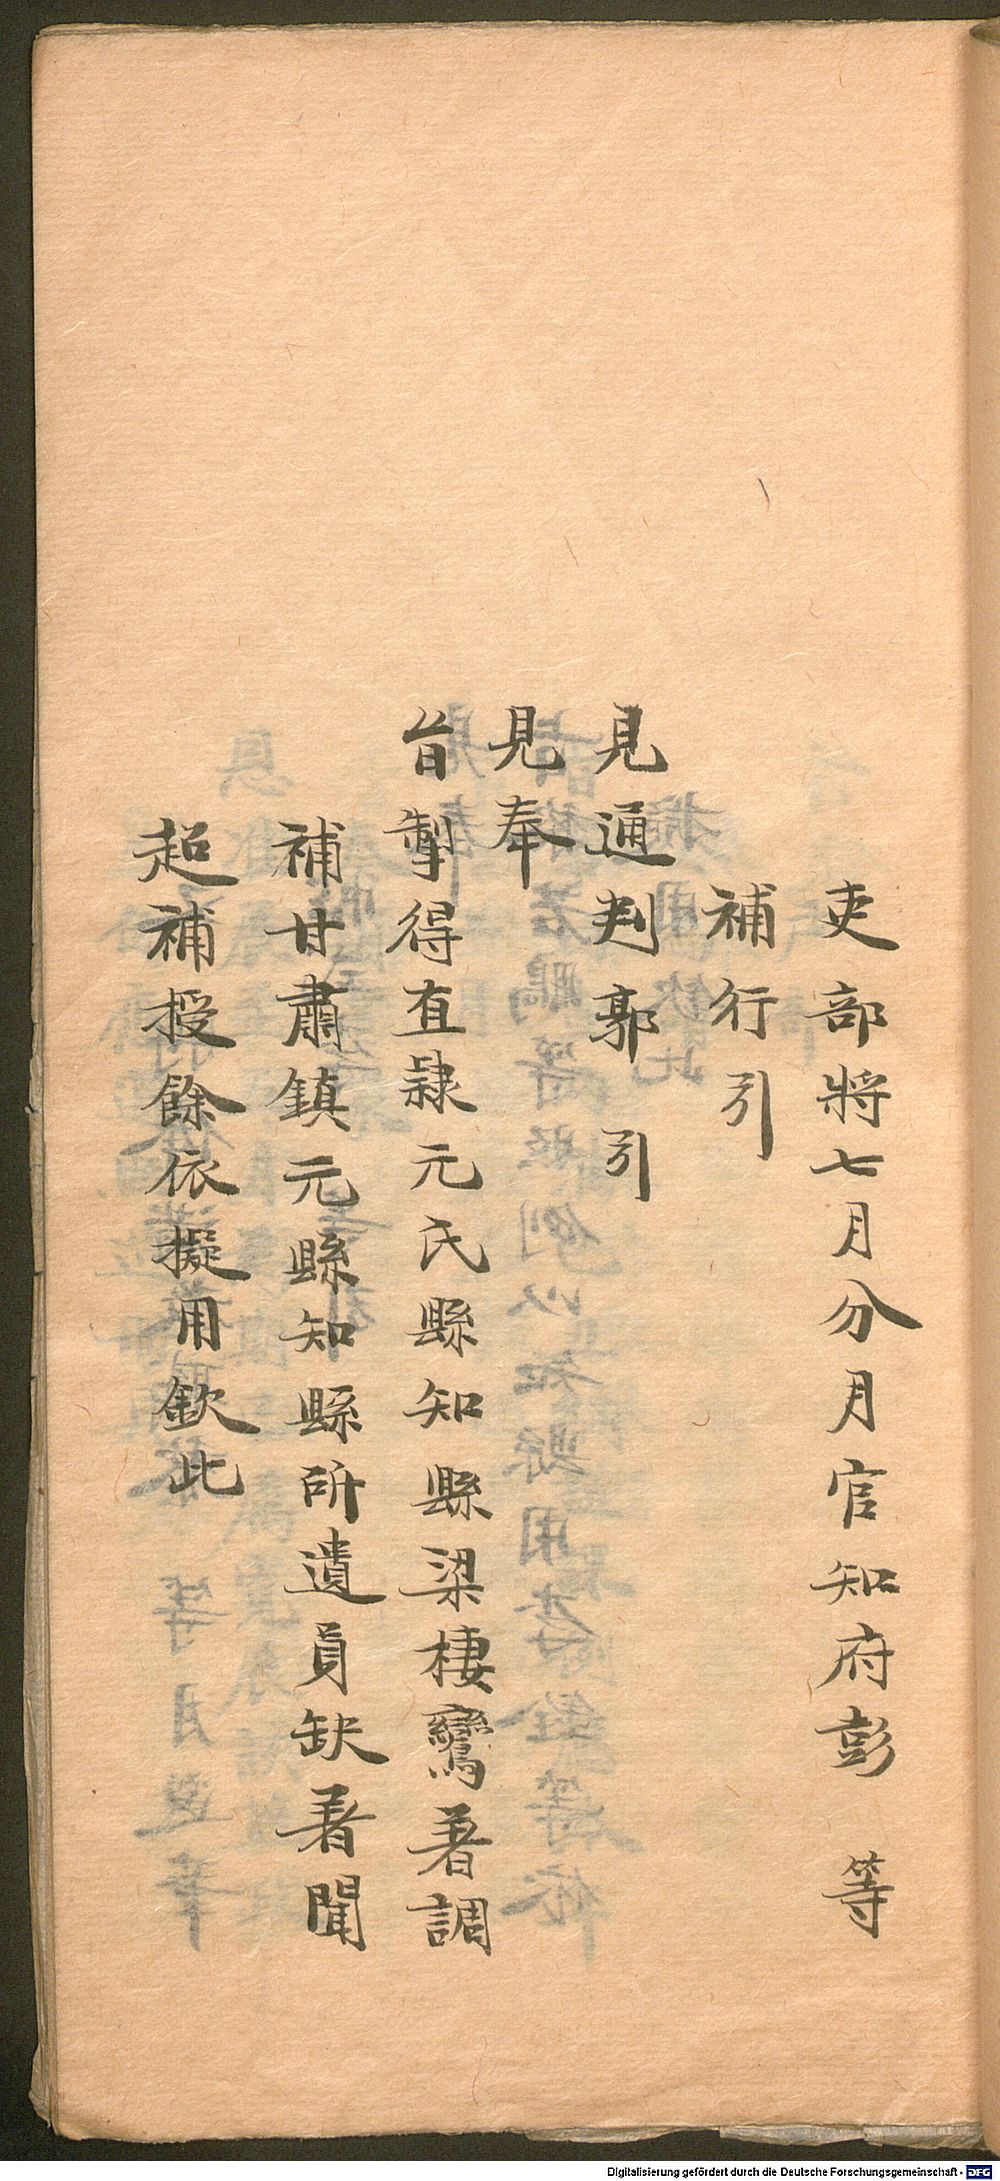 吏部將七月分月官知府彭　等
補行引
見通判郭　引
見奉
旨掣得直隷元氏縣知縣梁棲鸞著調
補甘肅鎮元縣知縣所遺員缺著聞
超補授餘依擬用欽此
Digitalisierung gefördert durch die Deutsche Forschungsgemeinschaft - DFG